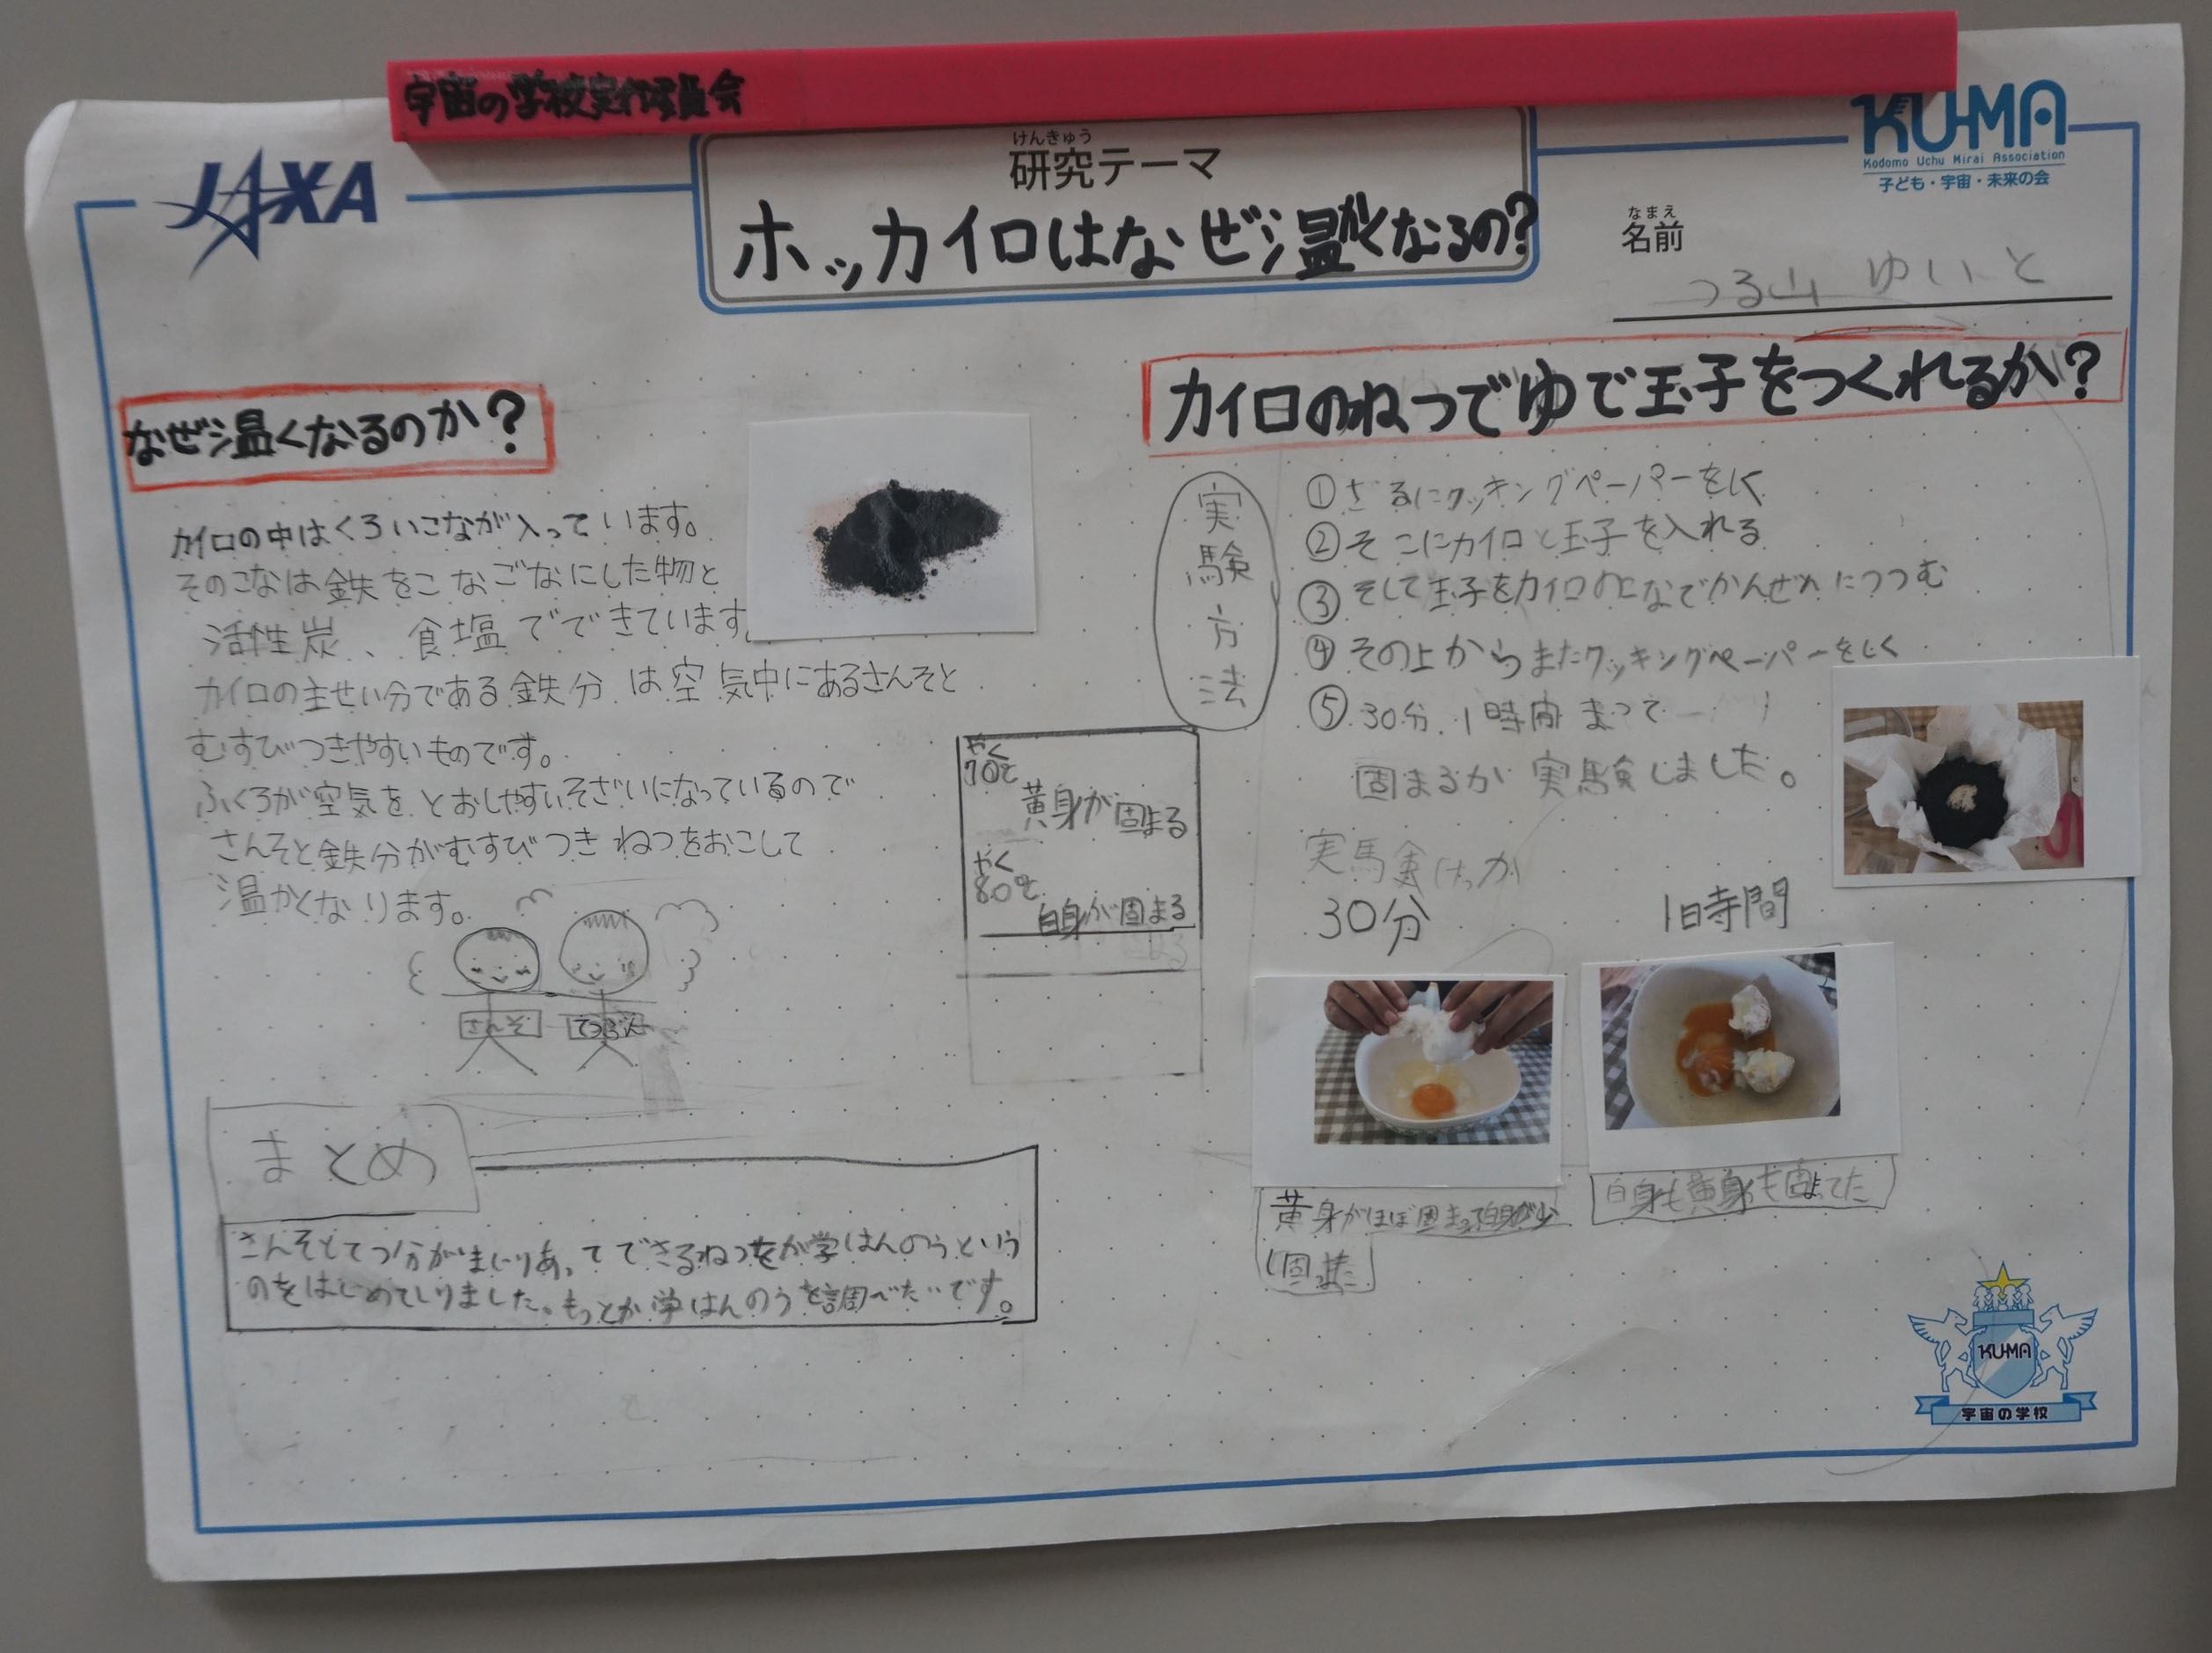 宇宙の学校実行委員会
JAXA
けんきゅう
研究テーマ
ホッカイロはなぜ温かくなるの?
KU-MA
Kodomo Uchu Mirai Association
子ども・宇宙・未来の会
なまえ
名前
つる山 ゆいと
なぜ温くなるのか?
カイロの中はくろいこなが入っています。
そのこなは鉄をこなごなにした物と
活性炭、食塩でできています
カイロの主せい分である鉄分は空気中にあるさんそと
むすびつきやすいものです。
ふくろが空気をとおしやすいそざいになっているので
さんそと鉄分がむすびつきねつをおこして
温かくなります。
さんそ
てつぶん
やく
70℃
黄身が固まる
やく
80℃
白身が固まる
まとめ
さんそとてつ分がまじりあってできるねつをか学はんのうという
のをはじめてしりました。もっとか学はんのうを調べたいです。
カイロのねつでゆで玉子をつくれるか?
実験方法
①ざるにクッキングペーパーをしく
②そこにカイロと玉子を入れる
③そして玉子をカイロのこなでかんぜんにつつむ
④その上からまたクッキングペーパーをしく
⑤30分、1時間まって
固まるか実験しました。
実験けっか
30分
1時間
黄身がほぼ固まって白身が少
し固まった
白身も黄身も固まってた
KU-MA
宇宙の学校